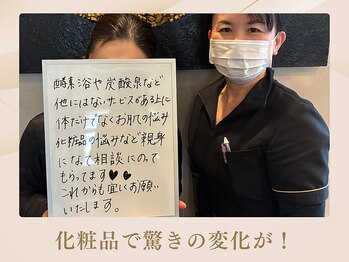 酵素浴や炭酸泉など
他にはないサービスがある上に
体だけでなくお肌の悩み
化粧品の悩みなど親身
になって相談にのって
もらってます♥♥
これからも宜しくお願い
いたします。
化粧品で驚きの変化が！